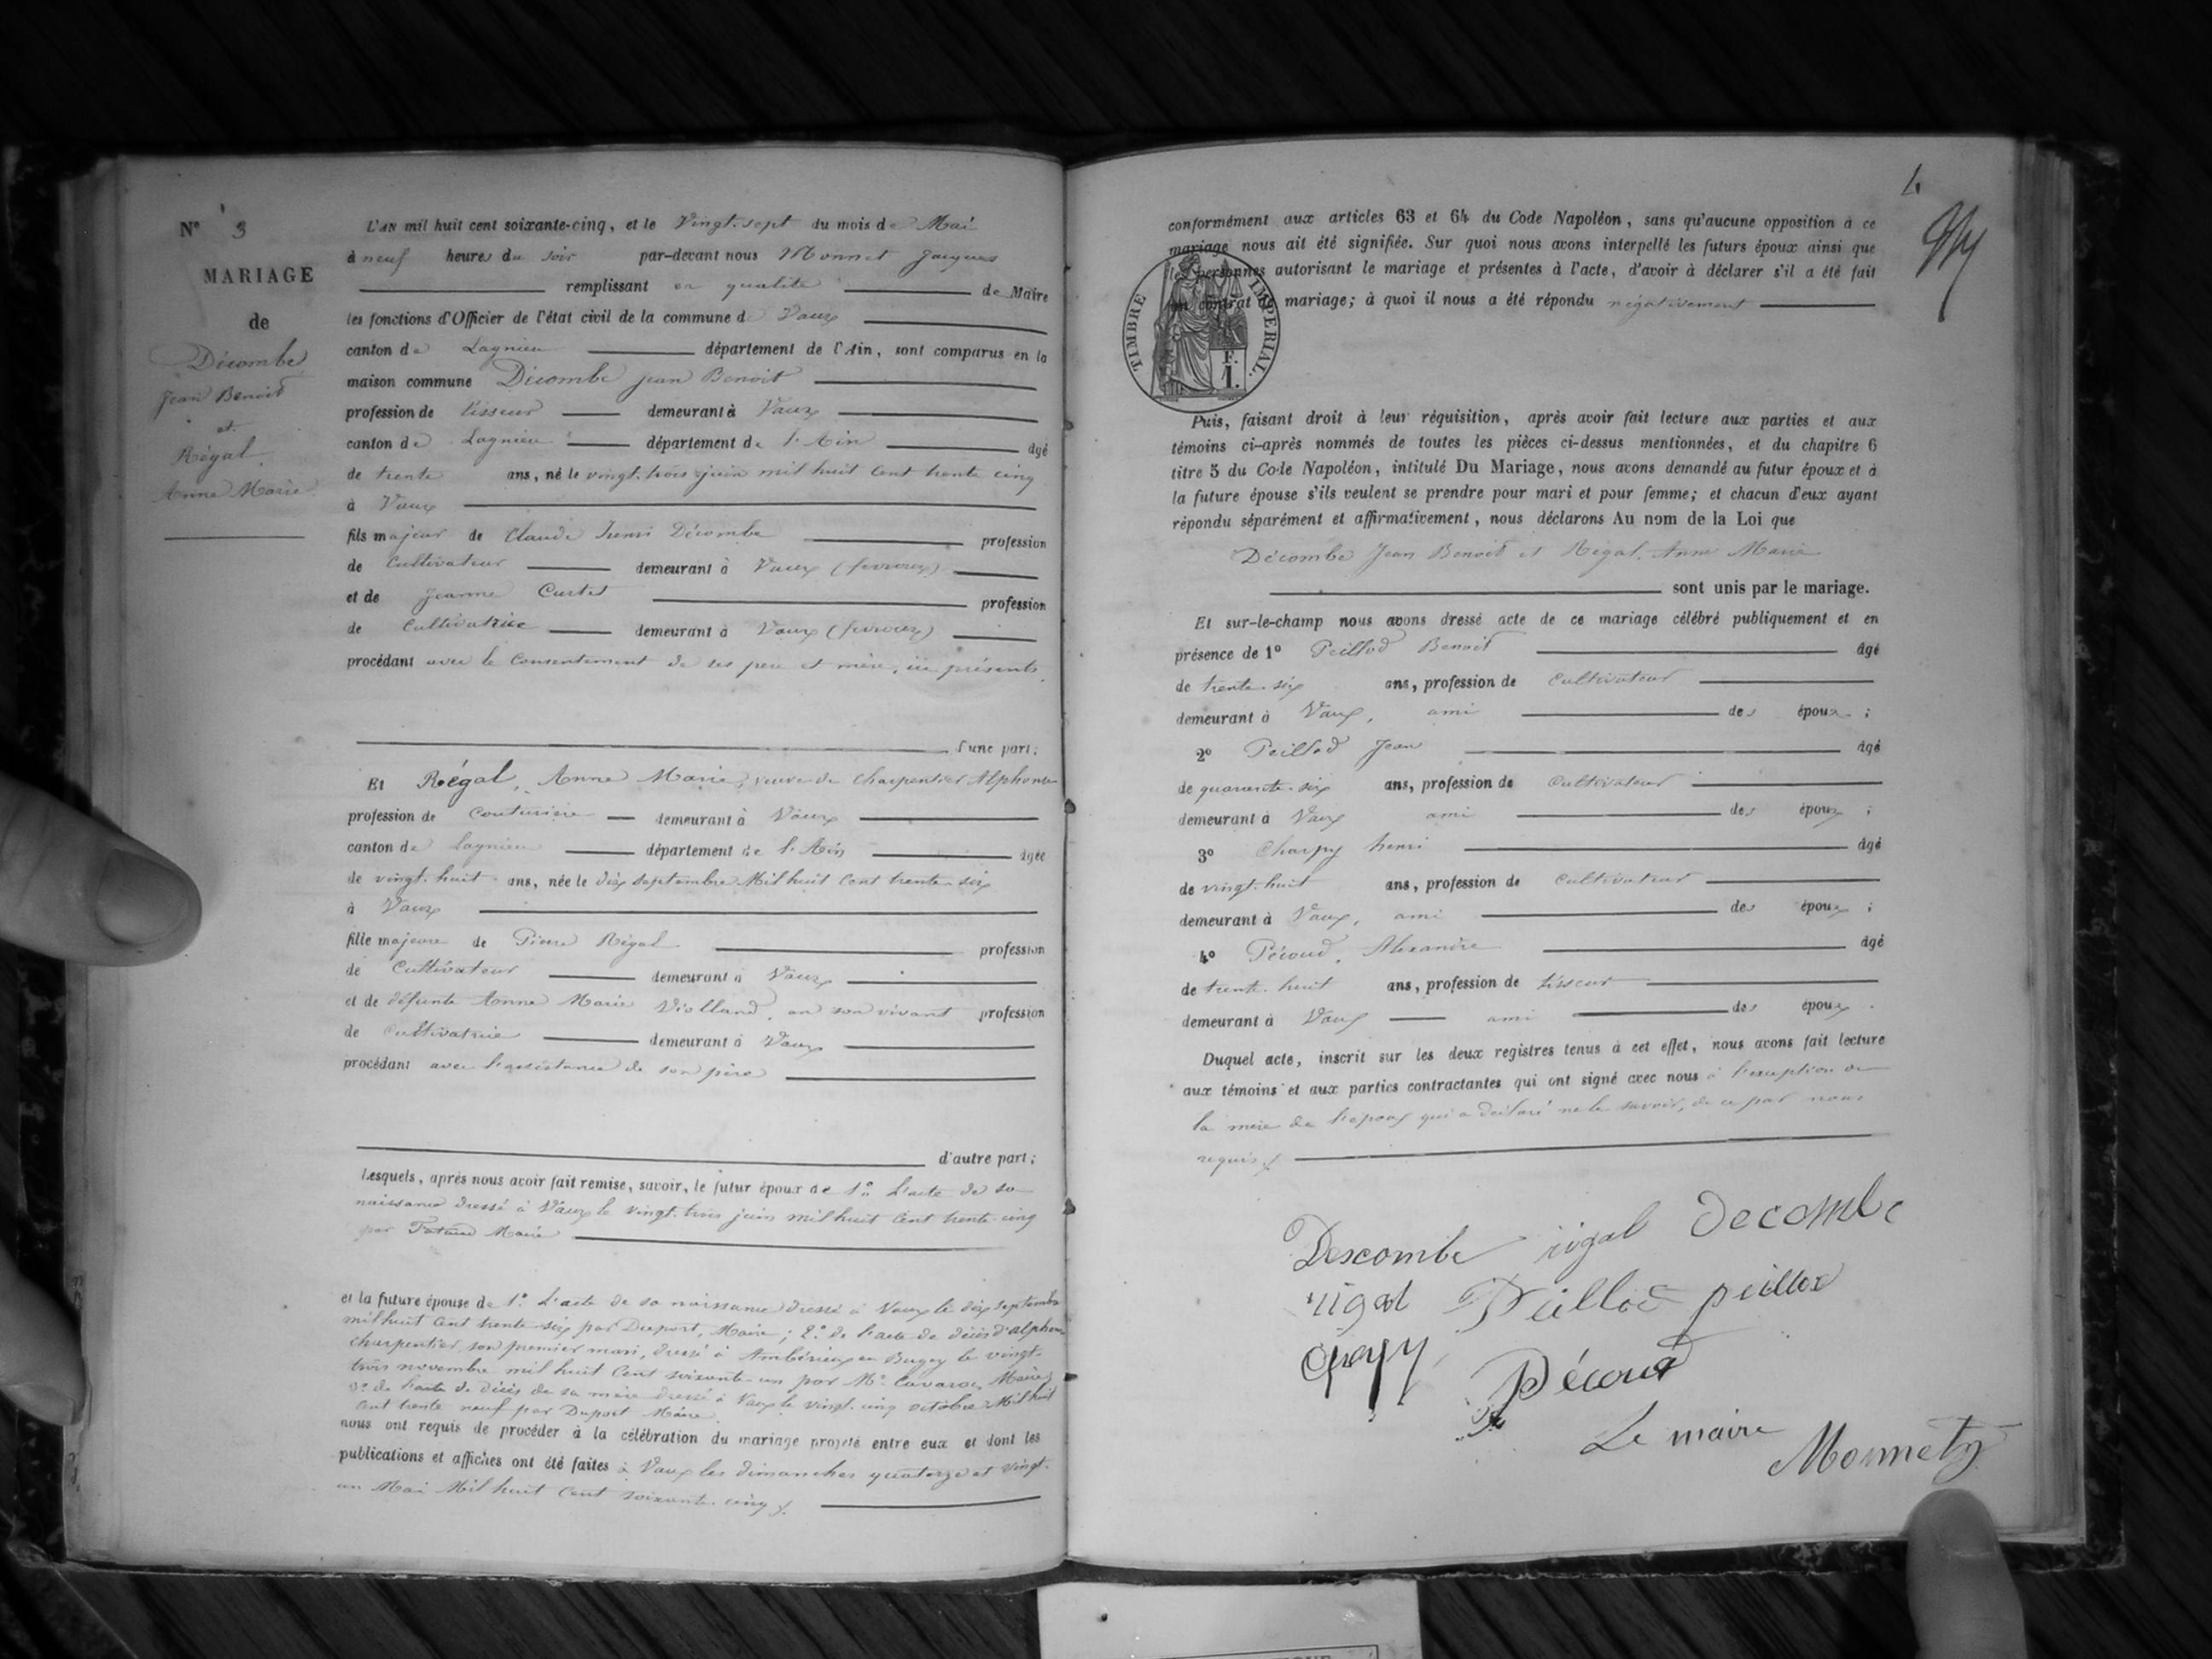 N° 3
MARIAGE
de
Décombe
Jean Benoit
et
Régal
Anne Marie
L'AN mil huit cent soixante-cinq, et le Vingt-sept du mois de Mai
à neuf heures du soir par-devant nous Monnet Jacques
remplissant en qualité de Maire
les fonctions d'Officier de l'état civil de la commune de Vaux
canton de Lagnieu département de l'Ain, sont comparus en la
maison commune Décombe Jean Benoit
profession de tisseur demeurant à Vaux
canton de Lagnieu département de l'Ain âgé
de trente ans, né le vingt-trois juin mil huit cent trente cinq
à Vaux
fils majeur de Claude Henri Décombe profession
de Cultivateur demeurant à Vaux
et de Jeanne Curtet profession
de Cultivatrice demeurant à Vaux
procédant avec le Consentement de ses père et mère, ici présents
d'une part;
Et Régal, Anne Marie, veuve de Charpentier Alphonse
profession de Couturière demeurant à Vaux
canton de Lagnieu département de l'Ain âgée
de vingt-huit ans, née le dix septembre Mil huit Cent trente-six
à Vaux
fille majeure de Pierre Régal profession
de Cultivateur demeurant à Vaux
et de défunte Anne Marie Violland, en son vivant profession
de Cultivatrice demeurant à Vaux
procédant avec l'assistance de son père
d'autre part;
Lesquels, après nous avoir fait remise, savoir, le futur époux de 1° L'acte de sa
naissance dressé à Vaux le vingt-trois juin mil huit Cent trente-cinq
par Maire
et la future épouse de 1° L'acte de sa naissance dressé à Vaux le dix septembre
mil huit Cent trente-six par Duport, Maire; 2° de l'acte de décès d'alphonse
Charpentier, son premier mari, dressé à Ambérieux en Bugey le vingt-
trois novembre mil huit Cent soixante-un par Mr Maire;
3° de l'acte de décès de sa mère dressé à Vaux le vingt-cinq octobre Mil huit
Cent trente neuf par Duport Maire
nous ont requis de procéder à la célébration du mariage projeté entre eux et dont les
publications et affiches ont été faites à Vaux les dimanches quatorze et vingt-
un Mai Mil huit Cent soixante-cinq
conformément aux articles 63 et 64 du Code Napoléon, sans qu'aucune opposition à ce
mariage nous ait été signifiée. Sur quoi nous avons interpellé les futurs époux ainsi que
les personnes autorisant le mariage et présentes à l'acte, d'avoir à déclarer s'il a été fait
un contrat de mariage; à quoi il nous a été répondu négativement
TIMBRE IMPERIAL.
F.
1.
Puis, faisant droit à leur réquisition, après avoir fait lecture aux parties et aux
témoins ci-après nommés de toutes les pièces ci-dessus mentionnées, et du chapitre 6
titre 5 du Code Napoléon, intitulé Du Mariage, nous avons demandé au futur époux et à
la future épouse s'ils veulent se prendre pour mari et pour femme; et chacun d'eux ayant
répondu séparément et affirmativement, nous déclarons Au nom de la Loi que
Décombe Jean Benoit et Régal, Anne Marie
sont unis par le mariage.
Et sur-le-champ nous avons dressé acte de ce mariage célébré publiquement et en
présence de 1° Peillod Benoit âgé
de trente-six ans, profession de Cultivateur
demeurant à Vaux, ami des époux;
2° Peillod Jean âgé
de quarante-six ans, profession de Cultivateur
demeurant à Vaux ami des époux;
3° Charpy henri âgé
de vingt-huit ans, profession de Cultivateur
demeurant à Vaux, ami des époux;
4° Alexandre âgé
de trente-huit ans, profession de tisseur
demeurant à Vaux ami des époux.
Duquel acte, inscrit sur les deux registres tenus à cet effet, nous avons fait lecture
aux témoins et aux parties contractantes qui ont signé avec nous à l'exception de
la mère de l'époux qui a déclaré ne le savoir, de ce par nous
requis
Descombe régal decombe
rigal Peillod peillod
Le maire
Monnet